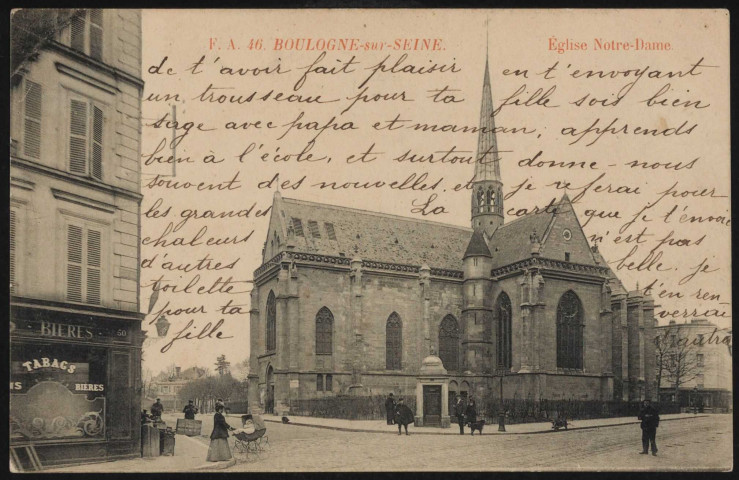 F. A. 46. BOULOGNE-sur-SEINE.
Église Notre-Dame.
de t'avoir fait plaisir en t'envoyant
un trousseau pour ta fille sois bien
sage avec papa et maman, apprends
bien à l'école, et surtout donne-nous
souvent des nouvelles, et je referai pour
les grandes
chaleurs
d'autres
toilettes
pour ta
fille
La carte que je t'envoie
n'est pas
belle. je
t'en ren
verrai
d'autre
BIERES
50
TABACS
BIERES